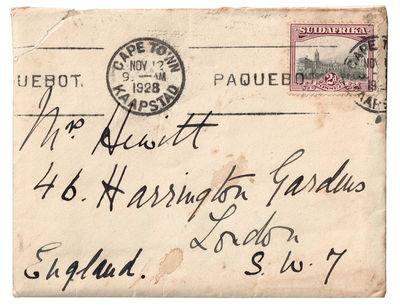 CAPE TOWN
NOV 12
9 - AM
1928
KAAPSTAD
QUEBOT.
PAQUEBO
SUIDAFRIKA
2D
CAPE T
NOV
KAAPSTA
Mr Hewitt
46. Harrington Gardens
London
England. S. W. 7